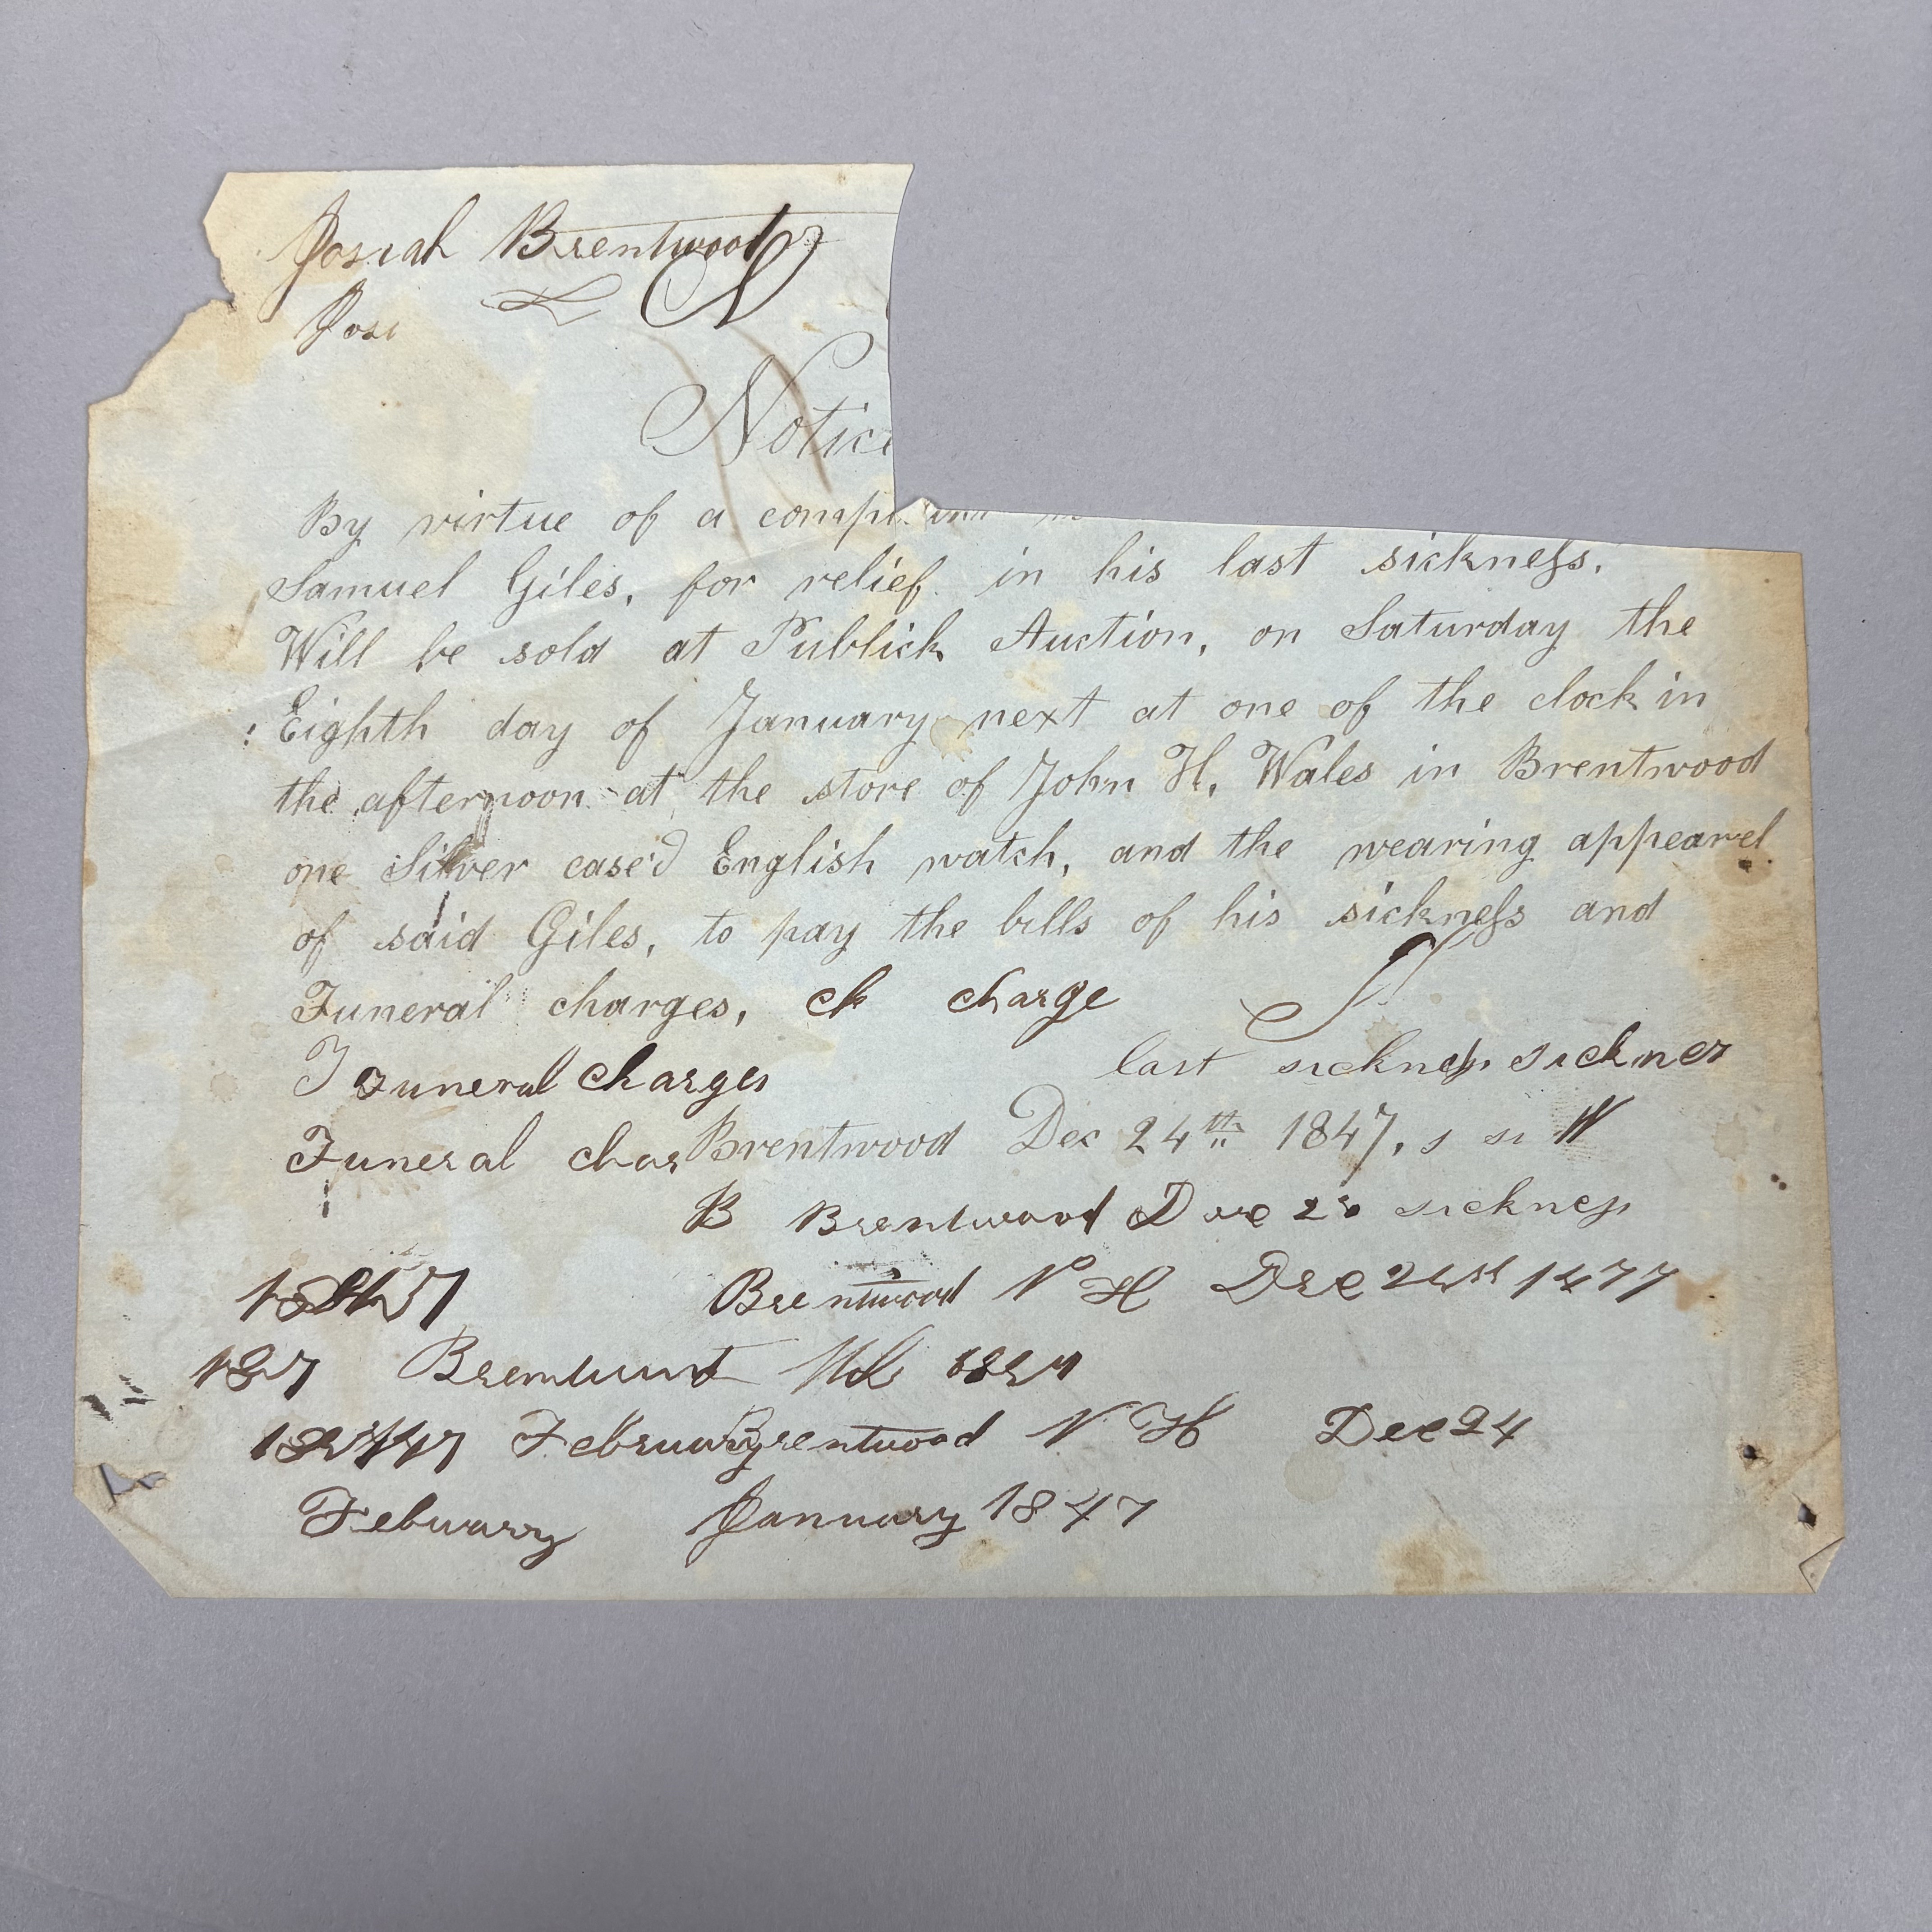 Josiah Brentwood
Josi N
Notice
By virtue of a
Samuel Giles, for relief in his last sickness.
Will be sold at Publick Auction, on Saturday the
Eighth day of January next at one of the clock in
the afternoon at the store of John H. Wales in Brentwood
one Silver case'd English watch, and the wearing appearel
of said Giles, to pay the bills of his sickness and
Funeral charges, ch charge
F Funeral Charges last sickness sickner
Funeral char Brentwood Dec 24th 1847, s si W
B Brentwood sickness
Brentwood N H Dec 1477
187
February Brentwood N H Dec 24
Febuary January 1847